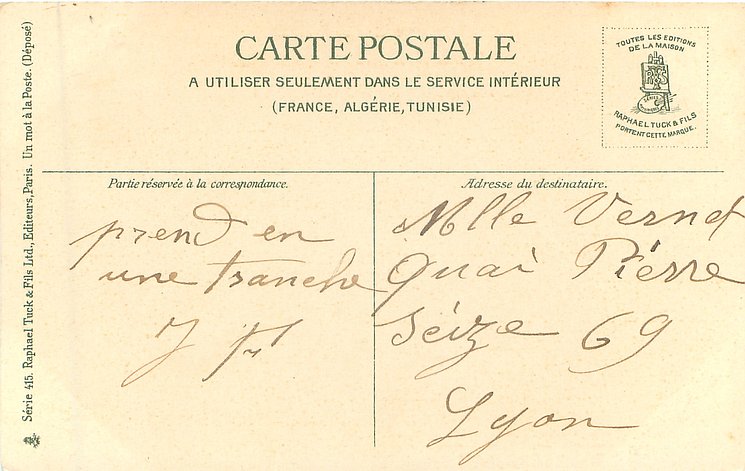 CARTE POSTALE
A UTILISER SEULEMENT DANS LE SERVICE INTÉRIEUR
(FRANCE, ALGÉRIE, TUNISIE)
TOUTES LES EDITIONS
DE LA MAISON
RAPHAEL TUCK & FILS
PORTENT CETTE MARQUE.
Série 415. Raphael Tuck & Fils Ltd., Editeurs, Paris. Un mot à la Poste. (Déposé)
Partie réservée à la correspondance.
prend en
une tranche
J
Adresse du destinataire.
Mlle Vernet
Quai Pierre
Séize 69
Lyon